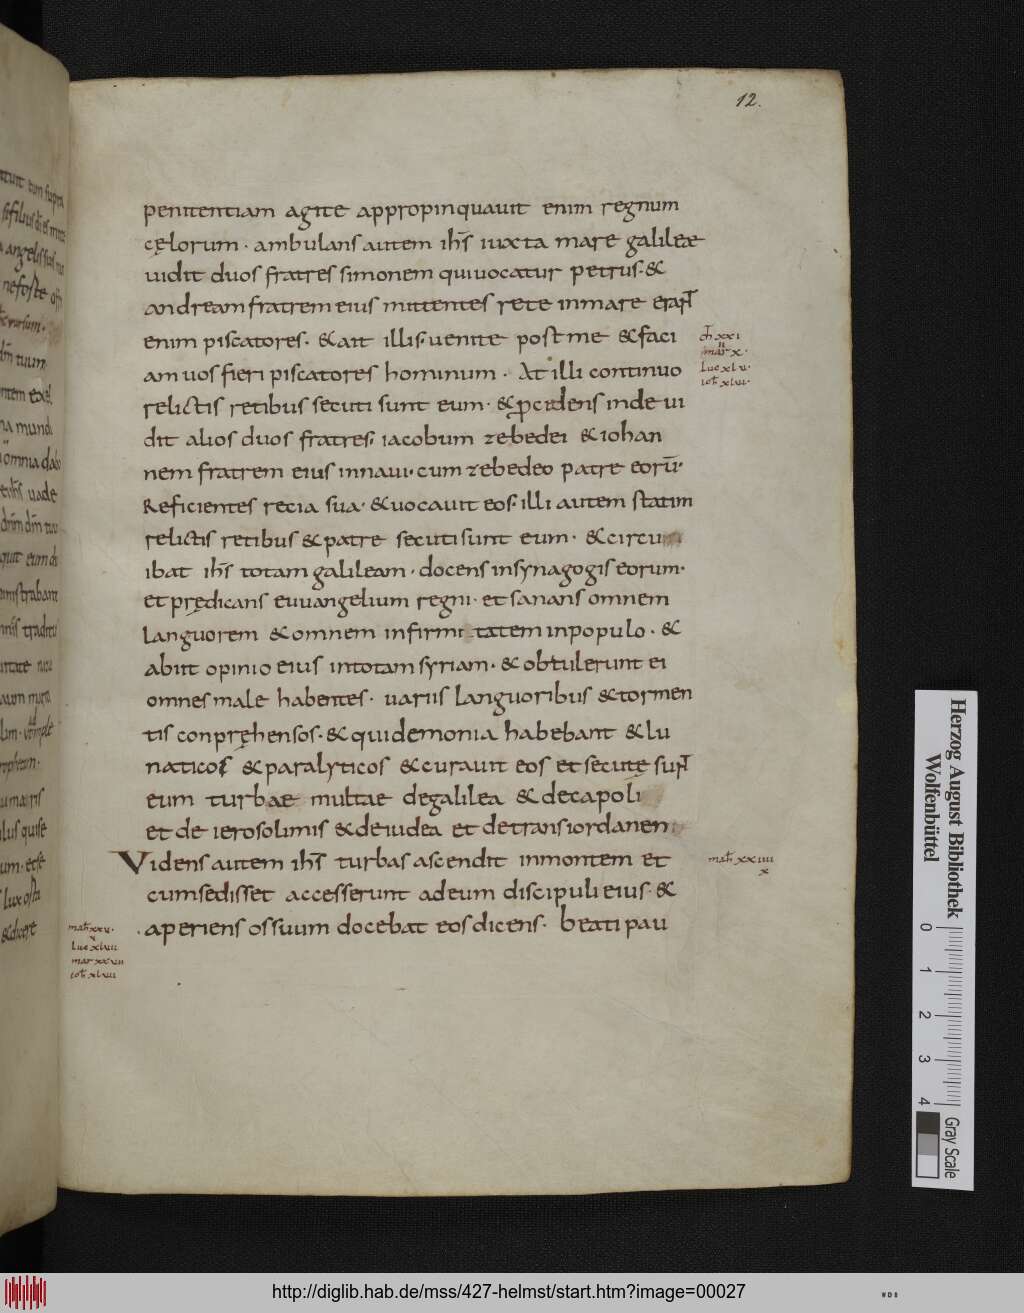 12.
penitentiam agite appropinquauit enim regnum
cęlorum · ambulans autem ih̅s iuxta mare galileæ
uidit duos fratres simonem qui uocatur petrus · &
andream fratrem eius mittentes rete in mare
enim piscatores · & ait illis · uenite post me & faci
am uos fieri piscatores hominum · At illi continuo
relictis retibus secuti sunt eum · & p̲cedens inde ui
dit alios duos fratres · iacobum zebedei & iohan
nem fratrem eius in naui · cum zebedeo patre eorū ·
Reficientes recia sua · & uocauit eos · illi autem statim
relictis retibus & patre secuti sunt eum · & circu
ibat ih̅s totam galileam · docens in synagogis eorum ·
et prędicans euuangelium regni · et sanans omnem
languorem & omnem infirmi tatem in populo · &
abiit opinio eius in totam syriam · & obtulerunt ei
omnes male habentes · uariis languoribus & tormen
tis conpręhensos · & qui demonia habebant & lu
naticos & paralyticos & curauit eos et secutę sun̅t
eum turbae multae de galilea & decapoli
et de ierosolimis & de iudea et de trans iordanen
Videns autem ih̅s turbas ascendit in montem et
cum sedisset accesserunt ad eum discipuli eius · &
aperiens os suum docebat eos dicens · beati pau
mar x ·
Luc xl v ·
mat̅ xx iiii
x
mat̅ xx v ·
v
Luc xl viii
mar xx vii
ioh̅ xl viii
Herzog August Bibliothek
Wolfenbüttel
0 1 2 3 4
Gray Scale
http://diglib.hab.de/mss/427-helmst/start.htm?image=00027